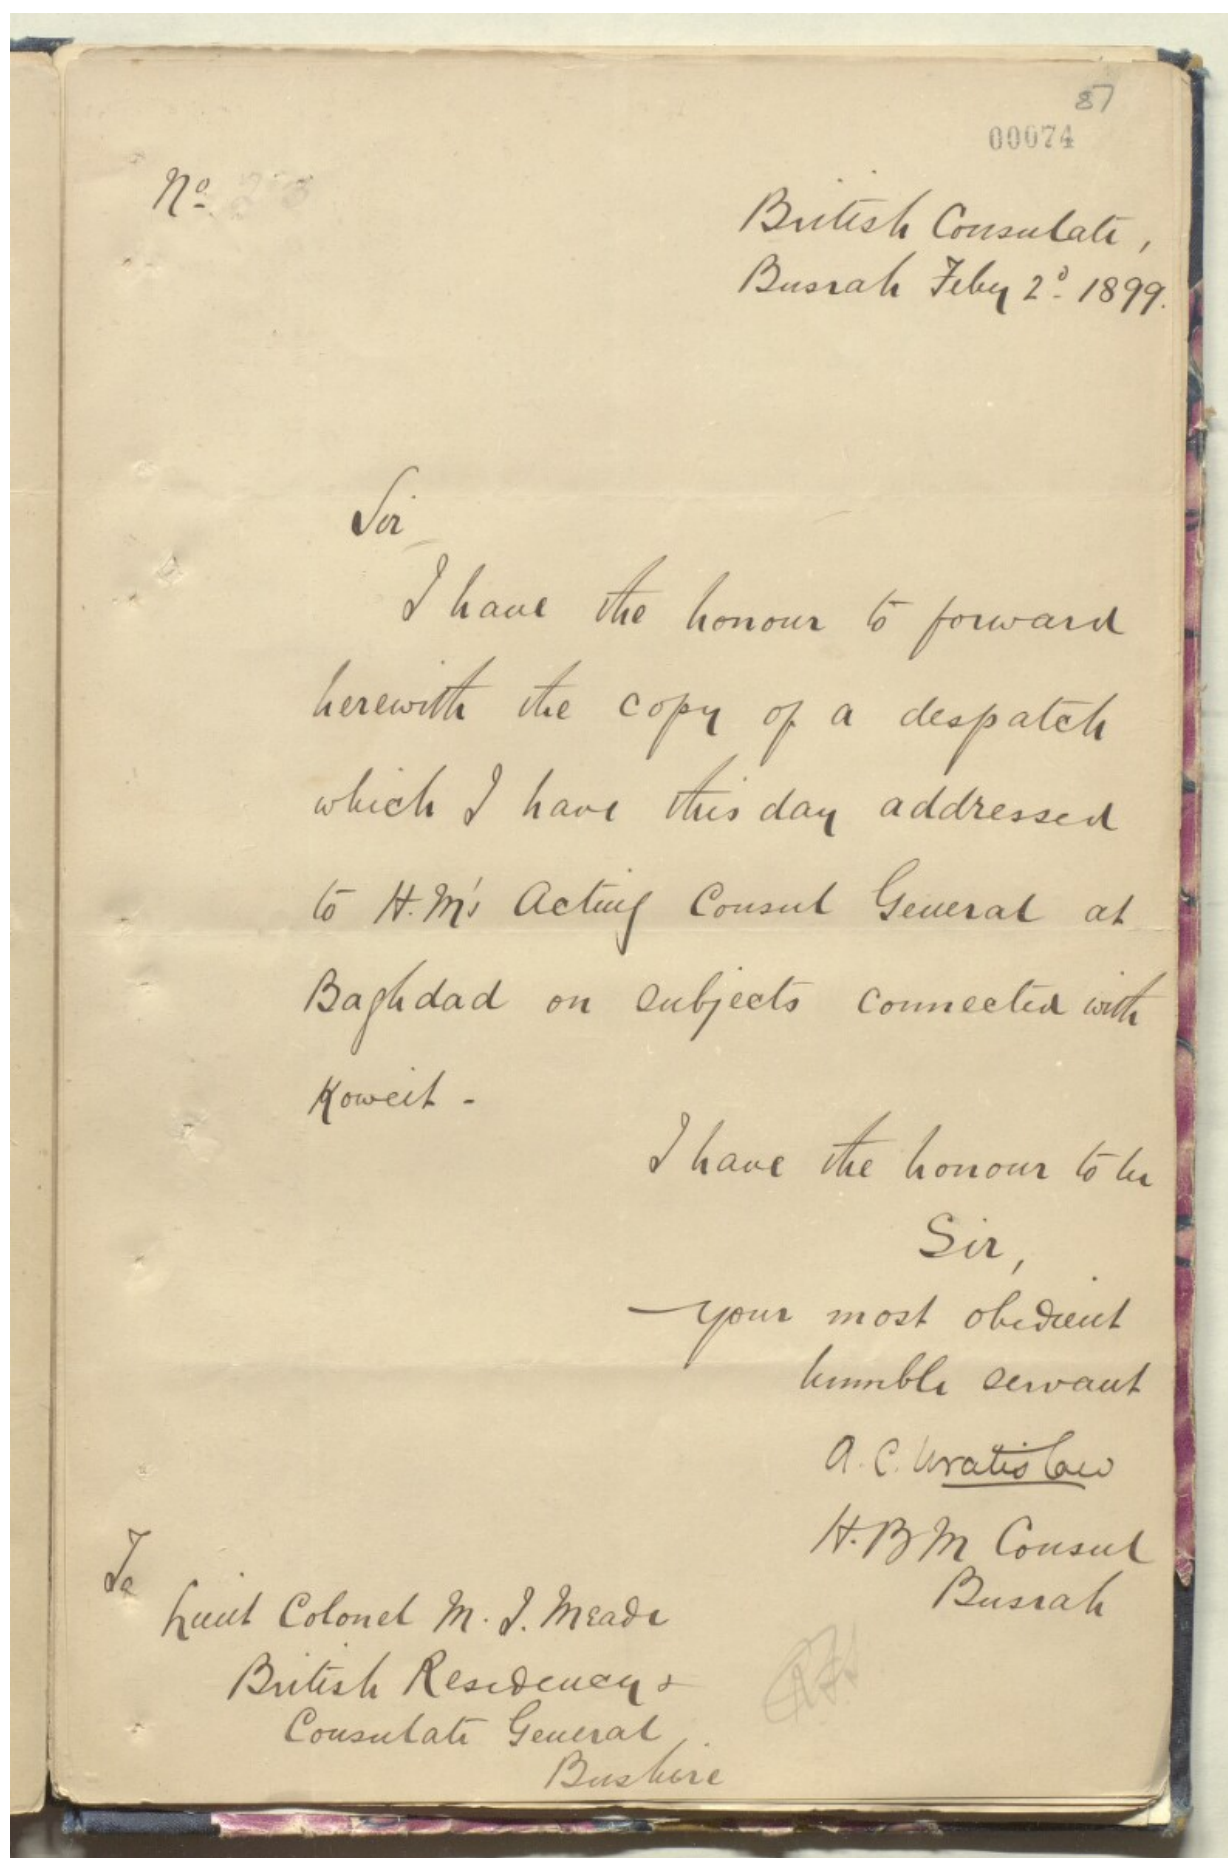 87
00074
Nº
British Consulate,
Busrah Feby 2ᵈ. 1899.
Sir
I have the honour to forward
herewith the copy of a despatch
which I have this day addressed
to H.M's Acting Consul General at
Baghdad on subjects connected with
Koweit -
I have the honour to be
Sir,
your most obedient
humble servant
A. C. Wratislaw
H.B M Consul
Busrah
To
Lieut Colonel M. J. Meade
British Residency &
Consulate General
Bushire